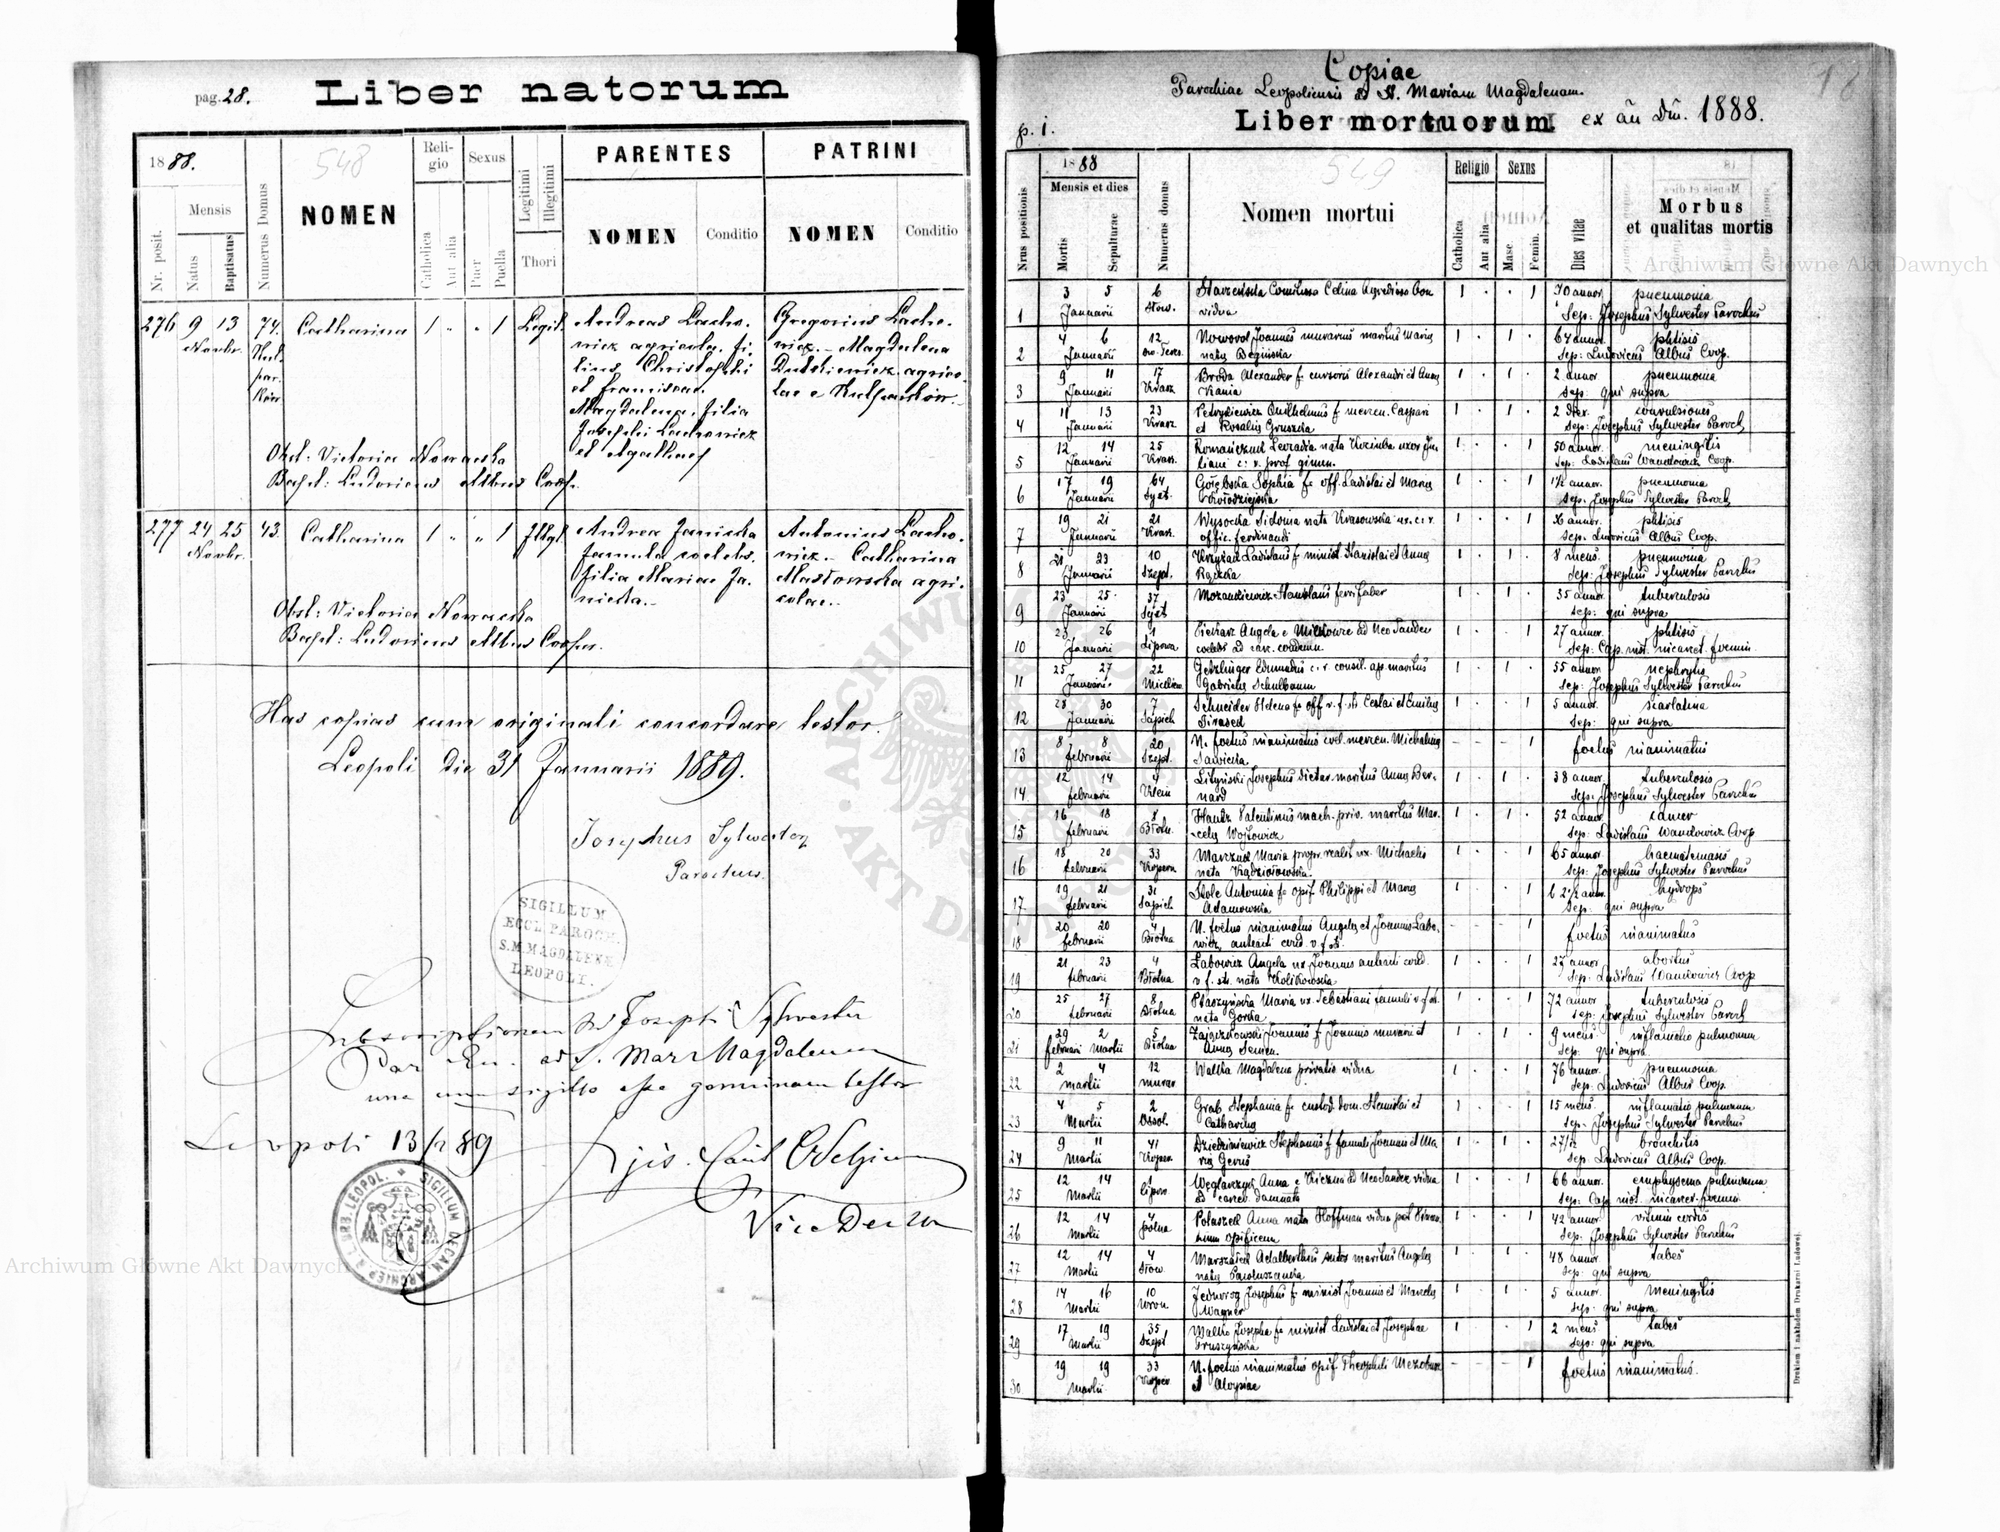 pag. 28. Liber natorum
1888.
Nr. posit.
Mensis
Natus
Baptisatus
Numerus Domus
548
NOMEN
Religio
Catholica
Aut alia
Sexus
Puer
Puella
Legitimi
Illegitimi
Thori
PARENTES
NOMEN
Conditio
PATRINI
NOMEN
Conditio
276 9 13 74. Catharina 1 " " 1 Legit.
Novbr.
Andreas Lacho-
wicz agricola, fi-
lius Christophi
et Franciscae.
Magdalena, filia
Josephi Lachowicz
et Agathae
Gregorius Lacho-
wicz. Magdalena
Dutkiewicz, agrico-
lae e Kulparkow.
Obst: Victoria Nowacka
Bapt: Ludovicus Albus Coop.
277 24 25 43. Catharina 1 " " 1 Illegt.
Novbr.
Andrea Janicka
famula coelebs.
filia Mariae Ja-
nicka.
Antonius Lacho-
wicz. Catharina
Masłowska agri-
colae.
Obst: Victoria Nowacka
Bapt: Ludovicus Albus Coop.
Has copias cum originali concordare testor.
Leopoli die 31 Januarii 1889.
Josephus Sylwester
Parochus.
SIGILLUM
ECCL. PAROCH.
S. M. MAGDALENAE
LEOPOLI.
Subscriptionem Josephi Sylwester
Par ad S. Mar Magdalenam
una cum sigillo esse genuinam testor
Leopoli 89
Vice Decan
SIGILLUM DECAN. ARCHIEP. R. L. URB. LEOPOL.
Copiae
Parochiae Leopoliensis ad S. Mariam Magdalenam
p. 1. Liber mortuorum ex an Dni. 1888.
Nrus positionis
1888
Mensis et dies
Mortis
Sepulturae
Numerus domus
549
Nomen mortui
Religio
Catholica
Aut alia
Sexus
Masc
Femin.
Dies vitae
Morbus
et qualitas mortis
3 5 6 Starzeńska Comitissa Celina 1 . . 1 70 annor. pneumonia
1 Januarii Słow. vidua Sep: Josephus Sylwester Parochus
4 6 12 Nowowol Joannes murarius maritus Mariae 1 . 1 . 64 annor. phtisis
2 Januarii Sep: Ludovicus Albus Coop.
9 11 17 Broda Alexander f. cursoris Alexandri et Annae 1 . 1 . 2 annor. pneumonia
3 Januarii Krasz Kania Sep: qui supra
11 13 23 Petrykiewicz Guilhelmus f. mercen. Caspari 1 . 1 . 2 dier. convulsiones
4 Januarii Krasz et Rosaliae Gruszka Sep: Josephus Sylwester Paroch
12 14 25 Romańczuk Leocadia nata uxor Ju- 1 . . 1 50 annor. meningitis
5 Januarii Krasz. liani c: r. prof gimn. Sep: Ladislaus Wandowicz Coop.
17 19 64 Gołębska Sophia f. off. Ladislai et Mariae 1 . . 1 1½ annor. pneumonia
6 Januarii Sep. Josephus Sylwester Paroch
19 21 21 Wysocka Sidonia nata Krasowska ux. c: r. 1 . . 1 annor. phtisis
7 Januarii Krasz. offic. Ferdinandi Sep. Ludovicus Albus Coop.
21 23 10 Ladislaus f. minist. Stanislai et Annae 1 . 1 . 8 mens. pneumonia
8 Januarii Szept. Rączka Sep: Josephus Sylwester Parochus
23 25 37 Stanislaus ferrifaber 1 . 1 . 35 annor. tuberculosis
9 Januarii Sep: qui supra
25 26 1 Angela e ad Neo Sandec 1 . . 1 27 annor. phtisis
10 Januarii Lipowa Sep: Cap. mil. incarcet. foemin.
25 27 22 Getzlinger Edmundus c. r. consil. ap. maritus 1 . 1 . 55 annor. nephrytis
11 Januarii Gabrielae Schulbaum Sep: Josephus Sylwester Parochus
28 30 7 Schneider Helena f. off. v. f. st. Ceslai et Emiliae 1 . . 1 5 annor. scarlatina
12 Januarii Sapieh Sep: qui supra
8 8 20 N. foetus inanimatus coel. mercen. Michalinae - - - 1 foetus inanimatus
13 februarii Szept. Sawicka.
12 14 4 Lityński Josephus dietar. maritus Annae Ber- 1 . 1 . 38 annor. tuberculosis
14 februarii Klein nard Sep. Josephus Sylwester Parochus
16 18 Valentinus mach. priv. maritus Mar- 1 . 1 . 52 annor cancer
15 februarii Błotn. celae Wojtowicz Sep. Ladislaus Wandowicz Coop
18 20 33 Marczuk Maria propr. realit ux. Michaelis 1 . . 1 65 annor haematemesis
16 februarii nata Sep. Josephus Sylwester Parochus
19 21 31 Antonina f. opif Philippi et Mariae 1 . . 1 hydrops
17 februarii Sapieh Adamowska Sep. qui supra
20 20 4 N. foetus inanimatus Angelae et Joannis Labo- 1 foetus inanimatus
18 februarii Błotna
21 23 4 Labowicz Angela ux. Joannis 1 . . 1 27 annor. abortus
19 februarii Błotna v. f. st. nata Sep. Ladislaus Wandowicz Coop
25 27 8 Ptaszyńska Maria ux. Sebastiani famuli v. f. st. 1 . . 1 72 annor tuberculosis
20 februarii Błotna nata Gorska Sep. Josephus Sylwester Paroch
29 2 5 Zajączkowski Joannes f. Joannis murarii et 1 . 1 . 9 mens inflamatio pulmonum
21 februarii Martii Błotna Annae Semen. Sep: qui supra.
2 4 12 Walka Magdalena privatis vidua 1 . . 1 76 annor. pneumonia
22 Martii murar Sep. Ludovicus Albus Coop.
4 5 2 Grab Stephania f. custod. dom. Stanislai et 1 . . 1 15 mens. inflamatio pulmonum
23 Martii Ossol. Catharinae Sep. Josephus Sylwester Parochus
9 11 41 Stephanus f. famuli Joannis et Ma- 1 . 1 . bronchitis
24 Martii riae Sep. Ludovicus Albus Coop.
12 14 1 Węglarczyk Anna e ad Neo Sandec vidua 1 . . 1 66 annor. emphysema pulmonum
25 Martii Lipow. ad carcer. damnata Sep. Cap. mil. incarcer. foemin.
12 14 4 Polaszek Anna nata Hoffman vidua post 1 . . 1 42 annor. vitium cordis
26 Martii polna opificem Sep. Josephus Sylwester Parochus
12 14 4 Marszałek Adalberthus sutor maritus Angelae 1 . 1 . 48 annor. tabes
27 Martii Słow. natae Sep: qui supra
14 16 10 Jednorog Josephus f. minist Joannis et Mariae 1 . 1 . 5 annor. meningitis
28 Martii Wron. Wagner Sep. qui supra
17 19 35 Walko Josepha f. minist Ladislai et Josephae 1 . . 1 2 mens tabes
29 Martii Szept Gruszyńska Sep: qui supra
19 19 33 N. foetus inanimatus opif. Theophili - - - 1 foetus inanimatus.
30 Martii et Aloysiae
Drukiem i nakładem Drukarni Ludowej.
Archiwum Główne Akt Dawnych
Archiwum Główne Akt Dawnych
ARCHIWUM GŁÓWNE AKT DAWNYCH